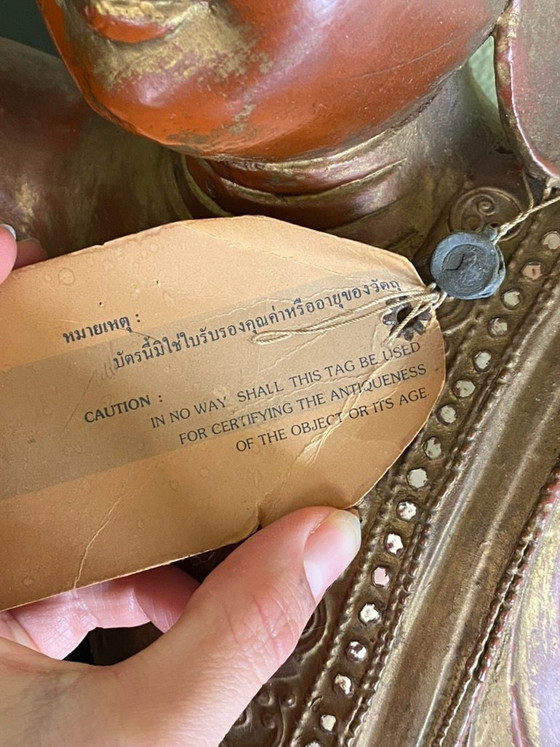 หมายเหตุ :
บัตรนี้มิใช่ใบรับรองคุณค่าหรืออายุของวัตถุ
CAUTION :
IN NO WAY SHALL THIS TAG BE USED
FOR CERTIFYING THE ANTIQUENESS
OF THE OBJECT OR ITS AGE